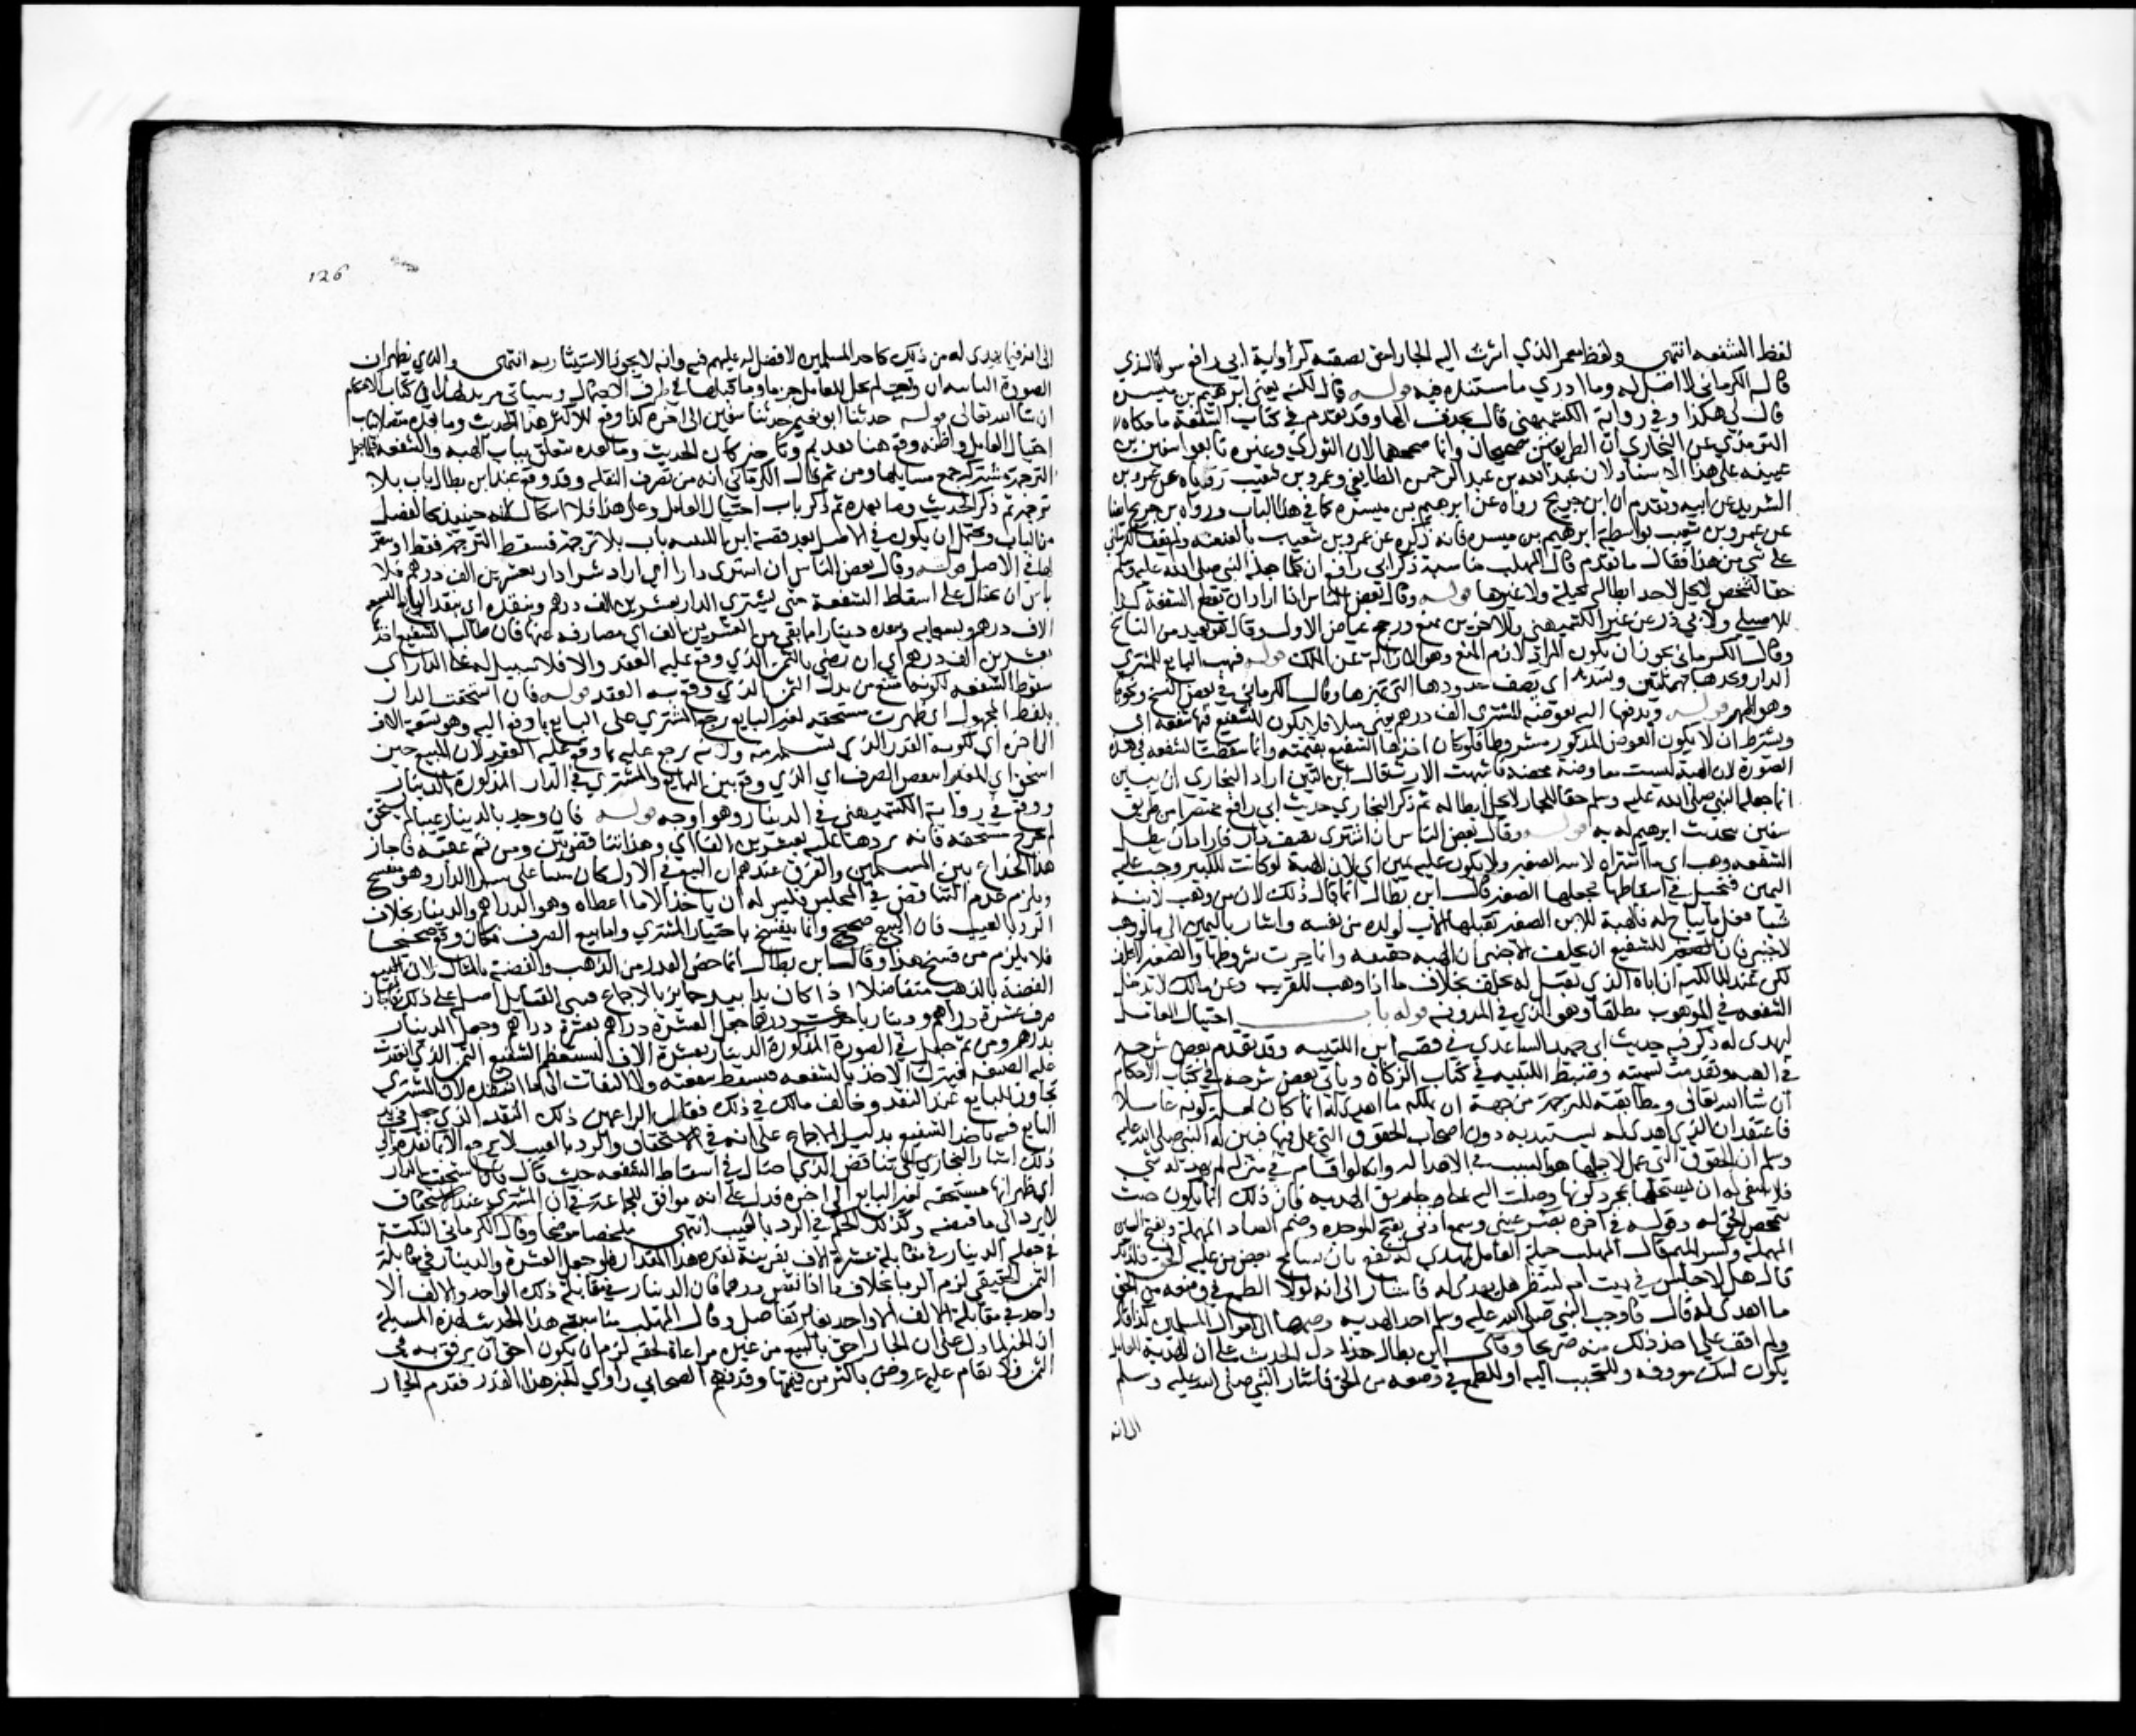 لفظ الشفعه انتهى ولفظ معمر الذي اشرت اليه الجار احق بصقبه كرواية ابي رافع سوا والذي
قاله الكرماني لا اصل له وما ادري ما مستنده فيه قوله قال لكنه يعني ابرهيم بن ميسره
قال لي هكذا وفي رواية الكشميهني قال بحذف الها وقد تقدم في كتاب الشفعة ما حكاه
الترمذي عن البخاري ان الطريقين صحيحان وانما صححهما لان الثوري وغيره تابعوا سفين بن
عيينه على هذا الاسناد لان عبد الله بن عبد الرحمن الطايفي وعمرو بن شعيب روياه عن عمرو بن
الشريد عن ابيه وتقدم ان ابن جريج رواه عن ابرهيم بن ميسره كما في هذا الباب ورواه بن جريج ايضا
عن عمرو بن شعيب بواسطة ابرهيم بن ميسره فانه ذكره عن عمرو بن شعيب بالعنعنه ولم يقف الكرماني
على شي من هذا فقال ما تقدم قال المهلب مناسبة ذكر ابي رافع ان كلما جعله النبي صلى الله عليه وسلم
حقا لشخص لا يحل لاحد ابطاله بحيلة ولا غيرها قوله وقال بعض الناس اذا اراد ان يقطع الشفعة كذا
للاصيلي ولابي ذر عن غير الكشميهني وللاخرين يبيع ورجح عياض الاول وقال هو تغيير من الناسخ
وقال الكرماني يجوز ان يكون المراد لازم البيع وهو الازالة عن الملك قوله فيهب البايع للمشتري
الدار ويحدها بمهملتين وتشديد اي يصف حدودها التي تميزها وقال الكرماني في بعض النسخ ونحوها
وهو اظهر قوله ويدفعها اليه ويعوضه المشتري الف درهم يعني مثلا فلا يكون للشفيع فيها شفعه اي
ويشترط ان لا يكون العوض المذكور مشروطا فلو كان اخذها الشفيع بقيمته وانما سقطت الشفعه في هذه
الصورة لان الهبة ليست معاوضة محضه فاشبهت الارث قال ابن التين اراد البخاري ان يبين
انما جعله النبي صلى الله عليه وسلم حقا للجار لا يحل ابطاله ثم ذكر البخاري حديث ابي رافع مختصرا من طريق
سفين بحديث ابرهيم له به قوله وقال بعض الناس ان اشترى نصيف دار فاراد ان يبطل
الشفعه وهب اي ما اشتراه لابنه الصغير ولا يكون عليه يمين اي لان الهبة لو كانت للكبير وجب عليه
اليمين فتحيل في اسقاطها بجعلها للصغير قال ابن بطال انما قال ذلك لان من وهب لابنه
شيا فعل ما يباح له فالهبة للابن الصغير تقبلها الاب لولده من نفسه واشار باليمين الى ما لو وهب
لاجنبي فان للشفيع ان يحلف الاجنبي ان الهبه حقيقه وانما جرت بشروطها والصغير لا يحلف
لكن عند المالكية ان اباه الذي يقبل له يحلف بخلاف ما اذا وهب للقريب وعن مالك لا تدخل
الشفعه في الموهوب مطلقا وهو الذي في المدونه قوله باب احتيال العامل
ليهدى له ذكر فيه حديث ابي حميد الساعدي في قصة ابن اللتبيه وقد تقدم بعض شرحه
في الهبه وتقدمت تسميته وضبط اللتبيه في كتاب الزكاة وياتي بعض شرحه في كتاب الاحكام
ان شا الله تعالى ومطابقته للترجمة من جهة ان تملكه ما اهدي له انما كان لعلة كونه عاملا
فاعتقد ان الذي اهدي له يستبد به دون اصحاب الحقوق التي عمل فيها فبين له النبي صلى الله عليه
وسلم ان الحقوق التي عمل لاجلها هو السبب في الاهدا له وانه لو اقام في منزله لم يهد له شي
فلا ينبغي له ان يستحلها بمجرد كونها وصلت اليه على طريق الهديه فان ذلك انما يكون حيث
يتمحض الحق له وقوله في اخره بصر عيني وسمع اذني بفتح الموحده وضم الصاد المهملة وفتح السين
المهملة وكسر الميم قال المهلب حيلة العامل ليهدى له تقع بان يسامح بعض من عليه الحق فلذلك
قال هل لا جلس في بيت امه لينظر هل يهدى له فاشار الى انه لولا الطمع في وضعه من الحق
ما اهدي له قال فاوجب النبي صلى الله عليه وسلم اخذ الهديه وضمها الى اموال المسلمين كذا قال
ولم اقف على اخذ ذلك منه صريحا وقال ابن بطال هذا دل الحديث على ان الهدية للعامل
يكون لشكر معروفه وللتحبب اليه او للطمع في وضعه من الحق فاشار النبي صلى الله عليه وسلم
الى انه
126
الى انه فيما يهدى له من ذلك كاحد المسلمين لا فضل له عليهم فيه وانه لا يجوز الاستيثار به انتهى والذي يظهر ان
الصورة الثالثه ان وقعت لم تحل للعامل جزما وما قبلها في طرف الاحتمال وسياتي مزيد لهذا في كتاب الاحكام
ان شا الله تعالى قوله حدثنا ابو نعيم حدثنا سفين الى اخره كذا وقع للاكثر هذا الحديث وما بعده متصلا بباب
احتيال العامل واظنه وقع هنا تقديم وتاخير فان الحديث وما بعده متعلق بباب الهبه والشفعة فلما جعل
الترجمة مشتركة جمع مسايلها ومن ثم قال الكرماني انه من تصرف النقلة وقد وقع عند ابن بطال باب بلا
ترجمة ثم ذكر الحديث وما بعده ثم ذكر باب احتيال العامل وعلى هذا فلا اشكال لانه حينيذ كالفصل
من الباب ويحتمل ان يكون في الاصل بعد قصة ابن اللتبيه باب بلا ترجمة فسقط الترجمة فقط او بيض
لها في الاصل قوله وقال بعض الناس ان اشترى دارا اي اراد شرا دار بعشرين الف درهم فلا
باس ان يحتال على اسقاط الشفعة حتى يشتري الدار بعشرين الف درهم وينقده اي ينقد البايع تسعة
الاف درهم وتسعمايه وينقده دينارا بما بقي من العشرين الف اي مصارفة عنها فان طالب الشفيع اخذها
بعشرين الف درهم اي ان رضي بالثمن الذي وقع عليه العقد والا فلا سبيل له على الدار اي
سقوط الشفعه لكونه امتنع من بدل الثمن الذي وقع به العقد قوله فان استحقت الدار
بلفظ المجهول اي ظهرت مستحقه لغير البايع يرجع المشتري على البايع بما دفع اليه وهو تسعة الاف
الى اخره اي لكونه القدر الذي تسلمه منه ولا يرجع عليه بما وقع عليه العقد لان المبيع حين
استحق اي للغير انتقض الصرف اي الذي وقع بين البايع والمشتري في الدار المذكورة بالدينار
ووقع في رواية الكشميهني في الدينار وهو اوجه قوله فان وجد بالدينار عيبا ولم تستحق
لم تخرج مستحقه فانه يردها عليه بعشرين الفا اي وهذا تناقض بين ومن ثم عقبه فاجاز
هذا الخداع بين المسلمين والفرق عندهم ان البيع في الاول كان مبنيا على شرا الدار وهو منفسخ
ويلزم عدم التقابض في المجلس فليس له ان ياخذ الا ما اعطاه وهو الدراهم والدينار بخلاف
الرد بالعيب فان البيع صحيح وانما ينفسخ باختيار المشتري واما بيع الصرف فكان وقع صحيحا
فلا يلزم من فسخ هذا وقال ابن بطال انما خص القدر من الذهب والفضة بالمثال لان بيع
الفضة بالذهب متفاضلا اذا كان يدا بيد جايز بالاجماع فبنى القايل اصله على ذلك فاجاز
صرف عشرة دراهم ودينار باحد عشر درهما جعل العشرة دراهم بعشرة دراهم وجعل الدينار
بدرهم ومن ثم جعل في الصورة المذكورة الدينار بعشرة الاف ليستعظم الشفيع الثمن الذي انعقدت
عليه الصيغه فيترك الاخذ بالشفعه فتسقط شفعته ولا التفات الى ما انتقده لان المشتري
تجاوز للبايع عند النقد وخالف مالك في ذلك فقال المراعى في ذلك النقد الذي حصل في يد
البايع فيه ياخذ الشفيع بدليل الاجماع على انه في الاستحقاق والرد بالعيب لا يرجع الا بما نقده والى
ذلك اشار البخاري الى تناقض الذي احتال في اسقاط الشفعه حيث قال فان استحقت الدار
اي ظهر انها مستحقه لغير البايع الى اخره فدل على انه موافق للجماعة في ان المشتري عند الاستحقاق
لا يرد الى ما قبضه وكذلك الحكم في الرد بالعيب انتهى ملخصا موضحا وقال الكرماني النكتة
في جعله الدينار في مقابلة عشرة الاف بقرينة نقده هذا المقدار فلو جعل العشرة والدينار في مقابلة
الثمن الحقيقي لزم الربا بخلاف ما اذا نقص درهما فان الدينار في مقابلة ذلك الواحد والالف الا
واحد في مقابلة الالف الا واحد بغير تفاضل وقال المهلب مناسبة هذا الحديث لهذه المسيلة
ان الخبر لما دل على ان الجار احق بالبيع من غيره مراعاة لحقه لزم ان يكون احق ان يرفق به في
الثمن ولا تقام عليه عروض باكثر من قيمتها وقد فهم الصحابي راوي الخبر هذا القدر فقدم الجار